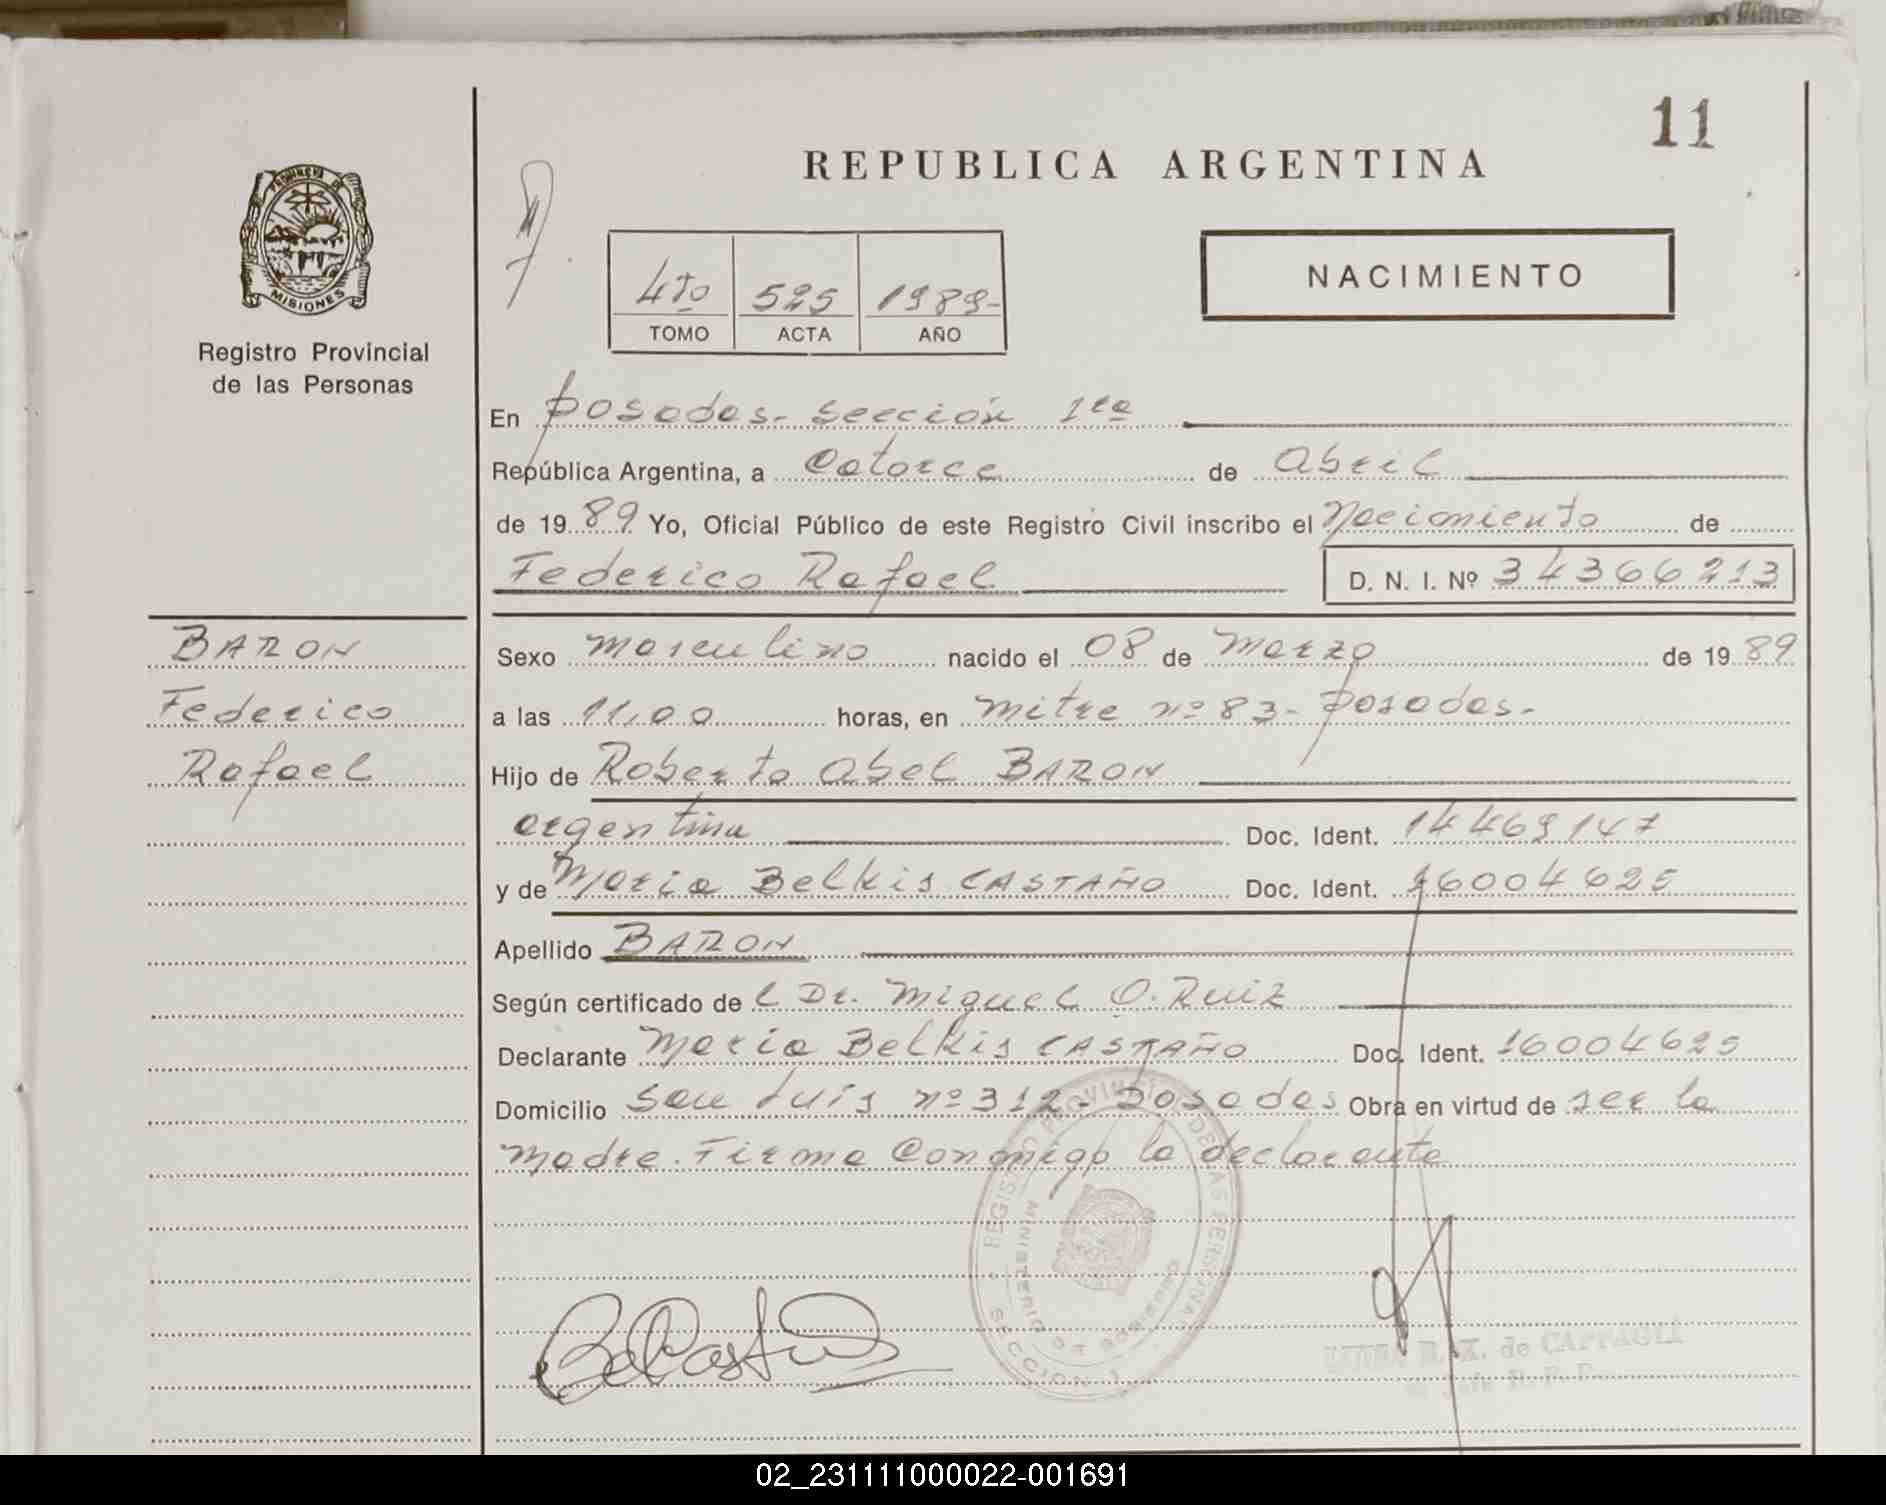 11
REPUBLICA ARGENTINA
PROVINCIA DE
MISIONES
Registro Provincial
de las Personas
4to 525 1989-
TOMO ACTA AÑO
NACIMIENTO
En Posadas- Sección 1ra
República Argentina, a Catorce de Abril
de 1989 Yo, Oficial Público de este Registro Civil inscribo el Nacimiento de
Federico Rafael D. N. I. Nº 34366213
BARON
Federico
Rafael
Sexo masculino nacido el 08 de Marzo de 1989
a las 11,00 horas, en Mitre nº 83- Posadas-
Hijo de Roberto Abel BARON
argentina Doc. Ident. 14469147
y de Maria Belkis CASTAÑO Doc. Ident. 16004625
Apellido BARON
Según certificado de l Dr. Miguel O. Ruiz
Declarante Maria Belkis CASTAÑO Doc. Ident. 16004625
Domicilio San Luis nº 312- Posadas Obra en virtud de ser la
madre. Firma Conmigo la declarante
REGISTRO PROVINCIAL DE LAS PERSONAS
MINISTERIO DE GOBIERNO
SECCION 1
de CAPPAGLI
02_231111000022-001691